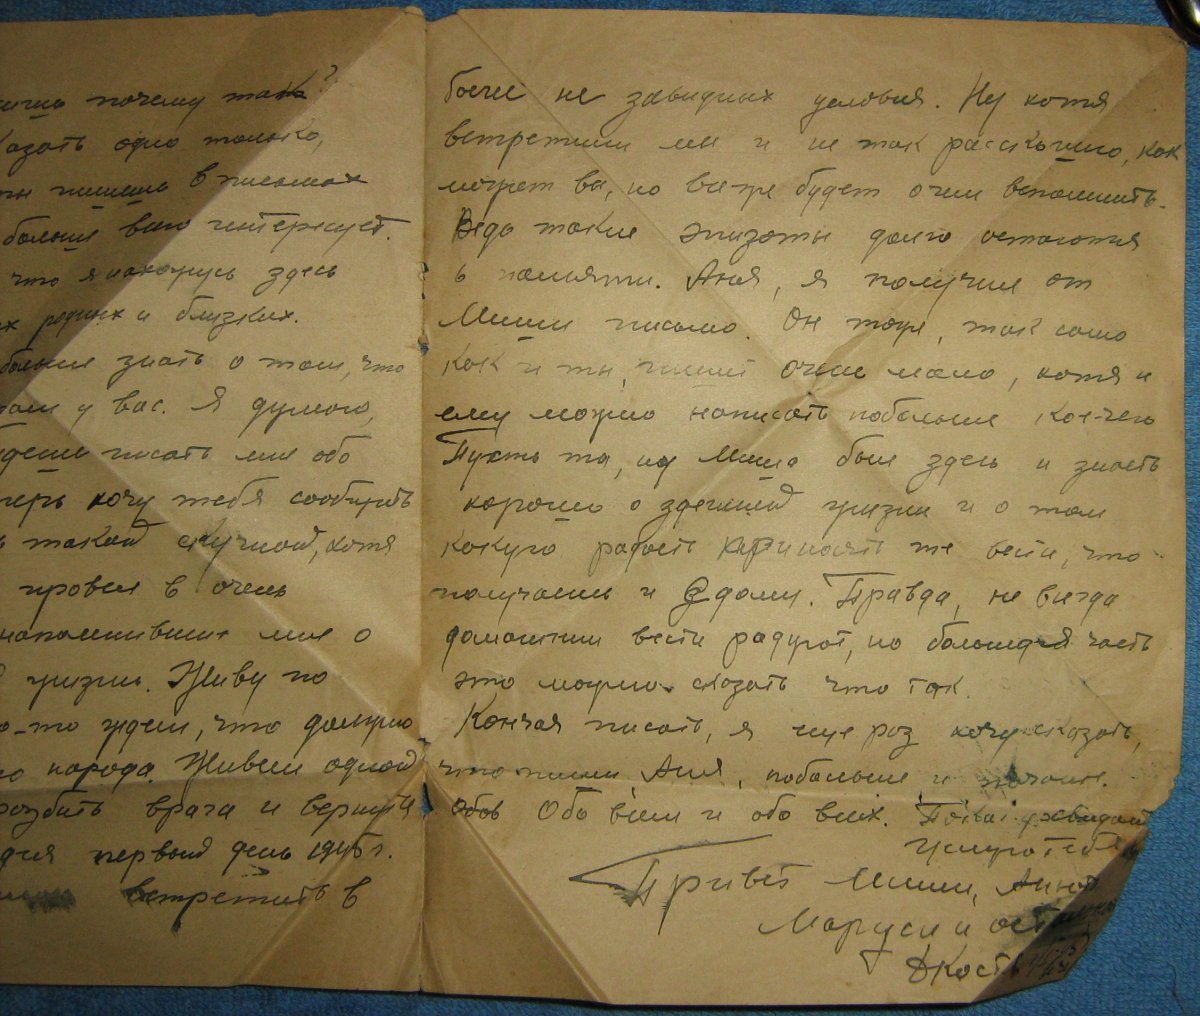 почему так?
казать одно только,
ты пишешь в письмах
больше всего интересует.
что я нахожусь здесь
родных и близких.
больше знать о том, что
у вас. Я думаю,
писать мне обо
хочу тебя сообщить
такой скучной, хотя
провел в очень
напомнивших мне о
жизни. Живу по
что-то ждем, что должно
народа. Живем одной
разбить врага и вернутся
первый день 1945 г.
встретить в
более не завидных условия. Ну хотя
встретили мы и не так расскошно, как
может вы, но все же будет о чем вспомнить.
Ведь такие эпизоты долго остаются
в памяти. Аня, я получил от
Миши письмо. Он тоже, так само
как и ты, пишет очень мало, хотя и
ему можно написать побольше кое-чего
Пусть та, но Миша был здесь и знает
хорошо о здешней жизни и о том
какую радость приносят те вести, что
получаешь из дому. Правда, не всегда
домашнии вести радуют, но большая часть
это можно сказать что так.
Кончая писать, я еще раз хочу сказать,
что пиши Аня, побольше и
Обо всем и обо всех. Пока
Целую тебя
Привет Мише, Анне
Маруси и
Кость